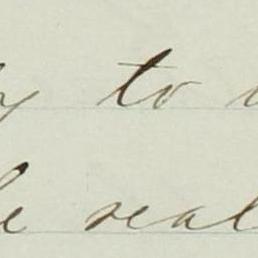 y to
e real